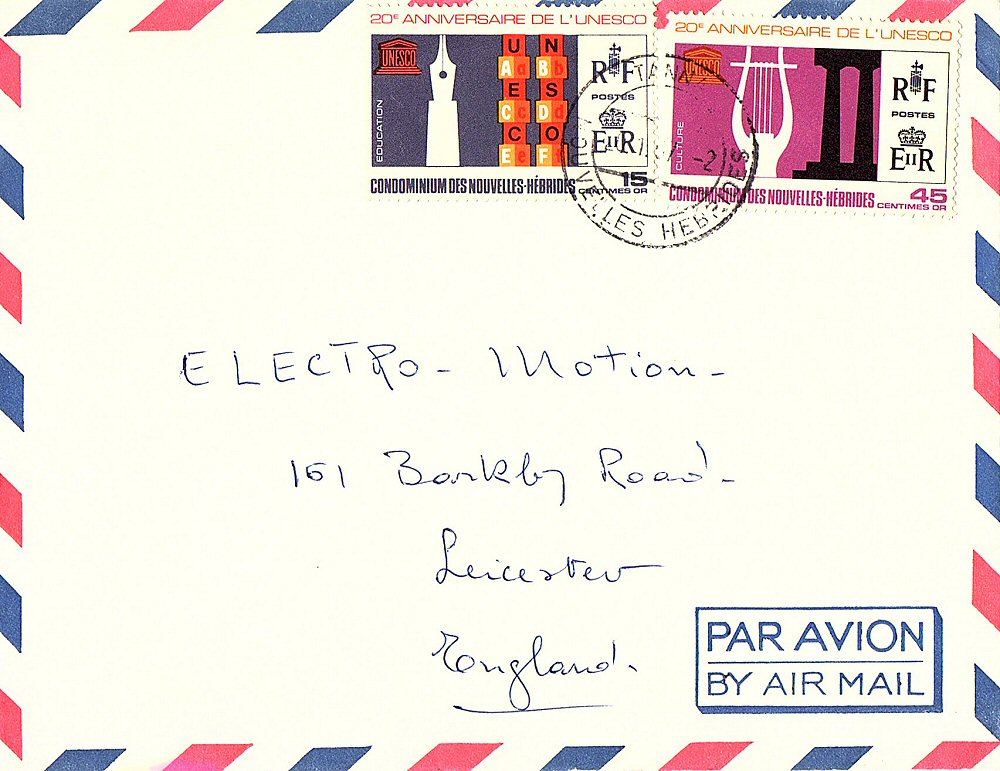 20E ANNIVERSAIRE DE L'UNESCO
UNESCO
EDUCATION
U N
Aa Bb
E S
Cc Dd
C O
Ee Ff
RF
POSTES
EIIR
CONDOMINIUM DES NOUVELLES-HÉBRIDES
15
CENTIMES OR
20E ANNIVERSAIRE DE L'UNESCO
UNESCO
CULTURE
RF
POSTES
EIIR
CONDOMINIUM DES NOUVELLES-HÉBRIDES
45
CENTIMES OR
TANNA
NOUVELLES HEBRIDES
ELECTRO - Motion -
161 Barkby Road -
Leicester
England.
PAR AVION
BY AIR MAIL